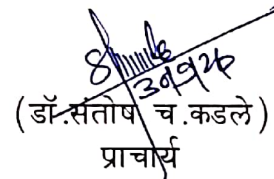 (डॉ.संतोष च.कडले)
प्राचार्य